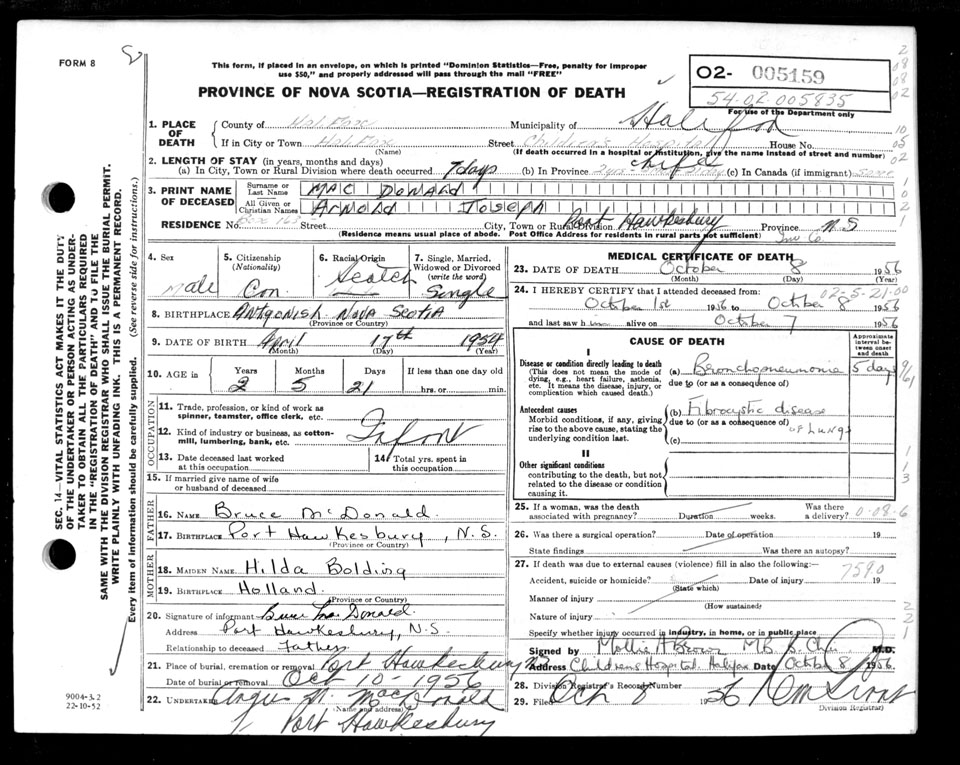 FORM 8
This form, if placed in an envelope, on which is printed "Dominion Statistics—Free, penalty for improper
use $50," and properly addressed will pass through the mail "FREE"
PROVINCE OF NOVA SCOTIA—REGISTRATION OF DEATH
O2- 005159
54-02-005835
For use of the Department only
1. PLACE OF DEATH
County of Halifax Municipality of Halifax
If in City or Town Halifax Street Children's Hospital House No.
(Name) (If death occurred in a hospital or institution, give the name instead of street and number)
2. LENGTH OF STAY (in years, months and days)
(a) In City, Town or Rural Division where death occurred 7 days (b) In Province life (c) In Canada (if immigrant)
3. PRINT NAME OF DECEASED
Surname or Last Name MAC DONALD
All Given or Christian Names Arnold Joseph
RESIDENCE No. Street City, Town or Rural Division Port Hawkesbury Province N.S
(Residence means usual place of abode. Post Office Address for residents in rural parts not sufficient)
4. Sex Male
5. Citizenship (Nationality) Can
6. Racial Origin Scotch
7. Single, Married, Widowed or Divorced (write the word) Single
8. BIRTHPLACE Antgonish Nova Scotia
(Province or Country)
9. DATE OF BIRTH April 17th 1954
(Month) (Day) (Year)
10. AGE in Years 2 Months 5 Days 21 If less than one day old hrs. or min.
OCCUPATION
11. Trade, profession or kind of work as spinner, teamster, office clerk, etc.
12. Kind of industry or business, as cotton-mill, lumbering, bank, etc. Infant
13. Date deceased last worked at this occupation
14. Total yrs. spent in this occupation
15. If married give name of wife or husband of deceased
FATHER
16. NAME Bruce McDonald.
17. BIRTHPLACE Port Hawkesbury, N.S.
(Province or Country)
MOTHER
18. MAIDEN NAME Hilda Bolding
19. BIRTHPLACE Holland
(Province or Country)
20. Signature of informant Bruce MacDonald.
Address Port Hawkesbury, N.S.
Relationship to deceased Father
21. Place of burial, cremation or removal Port Hawkesbury NS
Date of burial or removal Oct 10-1956
22. UNDERTAKER Angus MacDonald
(Name and address)
Port Hawkesbury
MEDICAL CERTIFICATE OF DEATH
23. DATE OF DEATH October 8 1956
(Month) (Day)
02-5-21-00
24. I HEREBY CERTIFY that I attended deceased from:
October 1st 1956 to October 8 1956
and last saw him alive on October 7 1956
CAUSE OF DEATH
Approximate interval between onset and death
I
Disease or condition directly leading to death
(This does not mean the mode of dying, e.g., heart failure, asthenia, etc. It means the disease, injury, or complication which caused death.)
(a) Bronchopneumonia 5 days
due to (or as a consequence of)
Antecedent causes
Morbid conditions, if any, giving rise to the above cause, stating the underlying condition last.
(b) Fibrocystic disease
due to (or as a consequence of)
of Lungs
(c)
II
Other significant conditions
contributing to the death, but not related to the disease or condition causing it.
25. If a woman, was the death associated with pregnancy? Duration weeks. Was there a delivery? 0-08-6
26. Was there a surgical operation? Date of operation 19
State findings Was there an autopsy?
27. If death was due to external causes (violence) fill in also the following:— 7590
Accident, suicide or homicide? Date of injury 19
(State which)
Manner of injury
(How sustained)
Nature of injury
Specify whether injury occurred in industry, in home, or in public place
Signed by Mollie H Brown MB B. Chir M.D.
Address Childrens Hospital, Halifax Date October 8 1956.
28. Division Registrar's Record Number
29. Filed Oct 1956
Division Registrar)
9004-3.2
22-10-52
SEC. 14—VITAL STATISTICS ACT MAKES IT THE DUTY
OF THE UNDERTAKER OR PERSON ACTING AS UNDER-
TAKER TO OBTAIN ALL THE PARTICULARS REQUIRED
IN THE "REGISTRATION OF DEATH" AND TO FILE THE
SAME WITH THE DIVISION REGISTRAR WHO SHALL ISSUE THE BURIAL PERMIT.
WRITE PLAINLY WITH UNFADING INK. THIS IS A PERMANENT RECORD.
Every item of information should be carefully supplied. (See reverse side for instructions.)